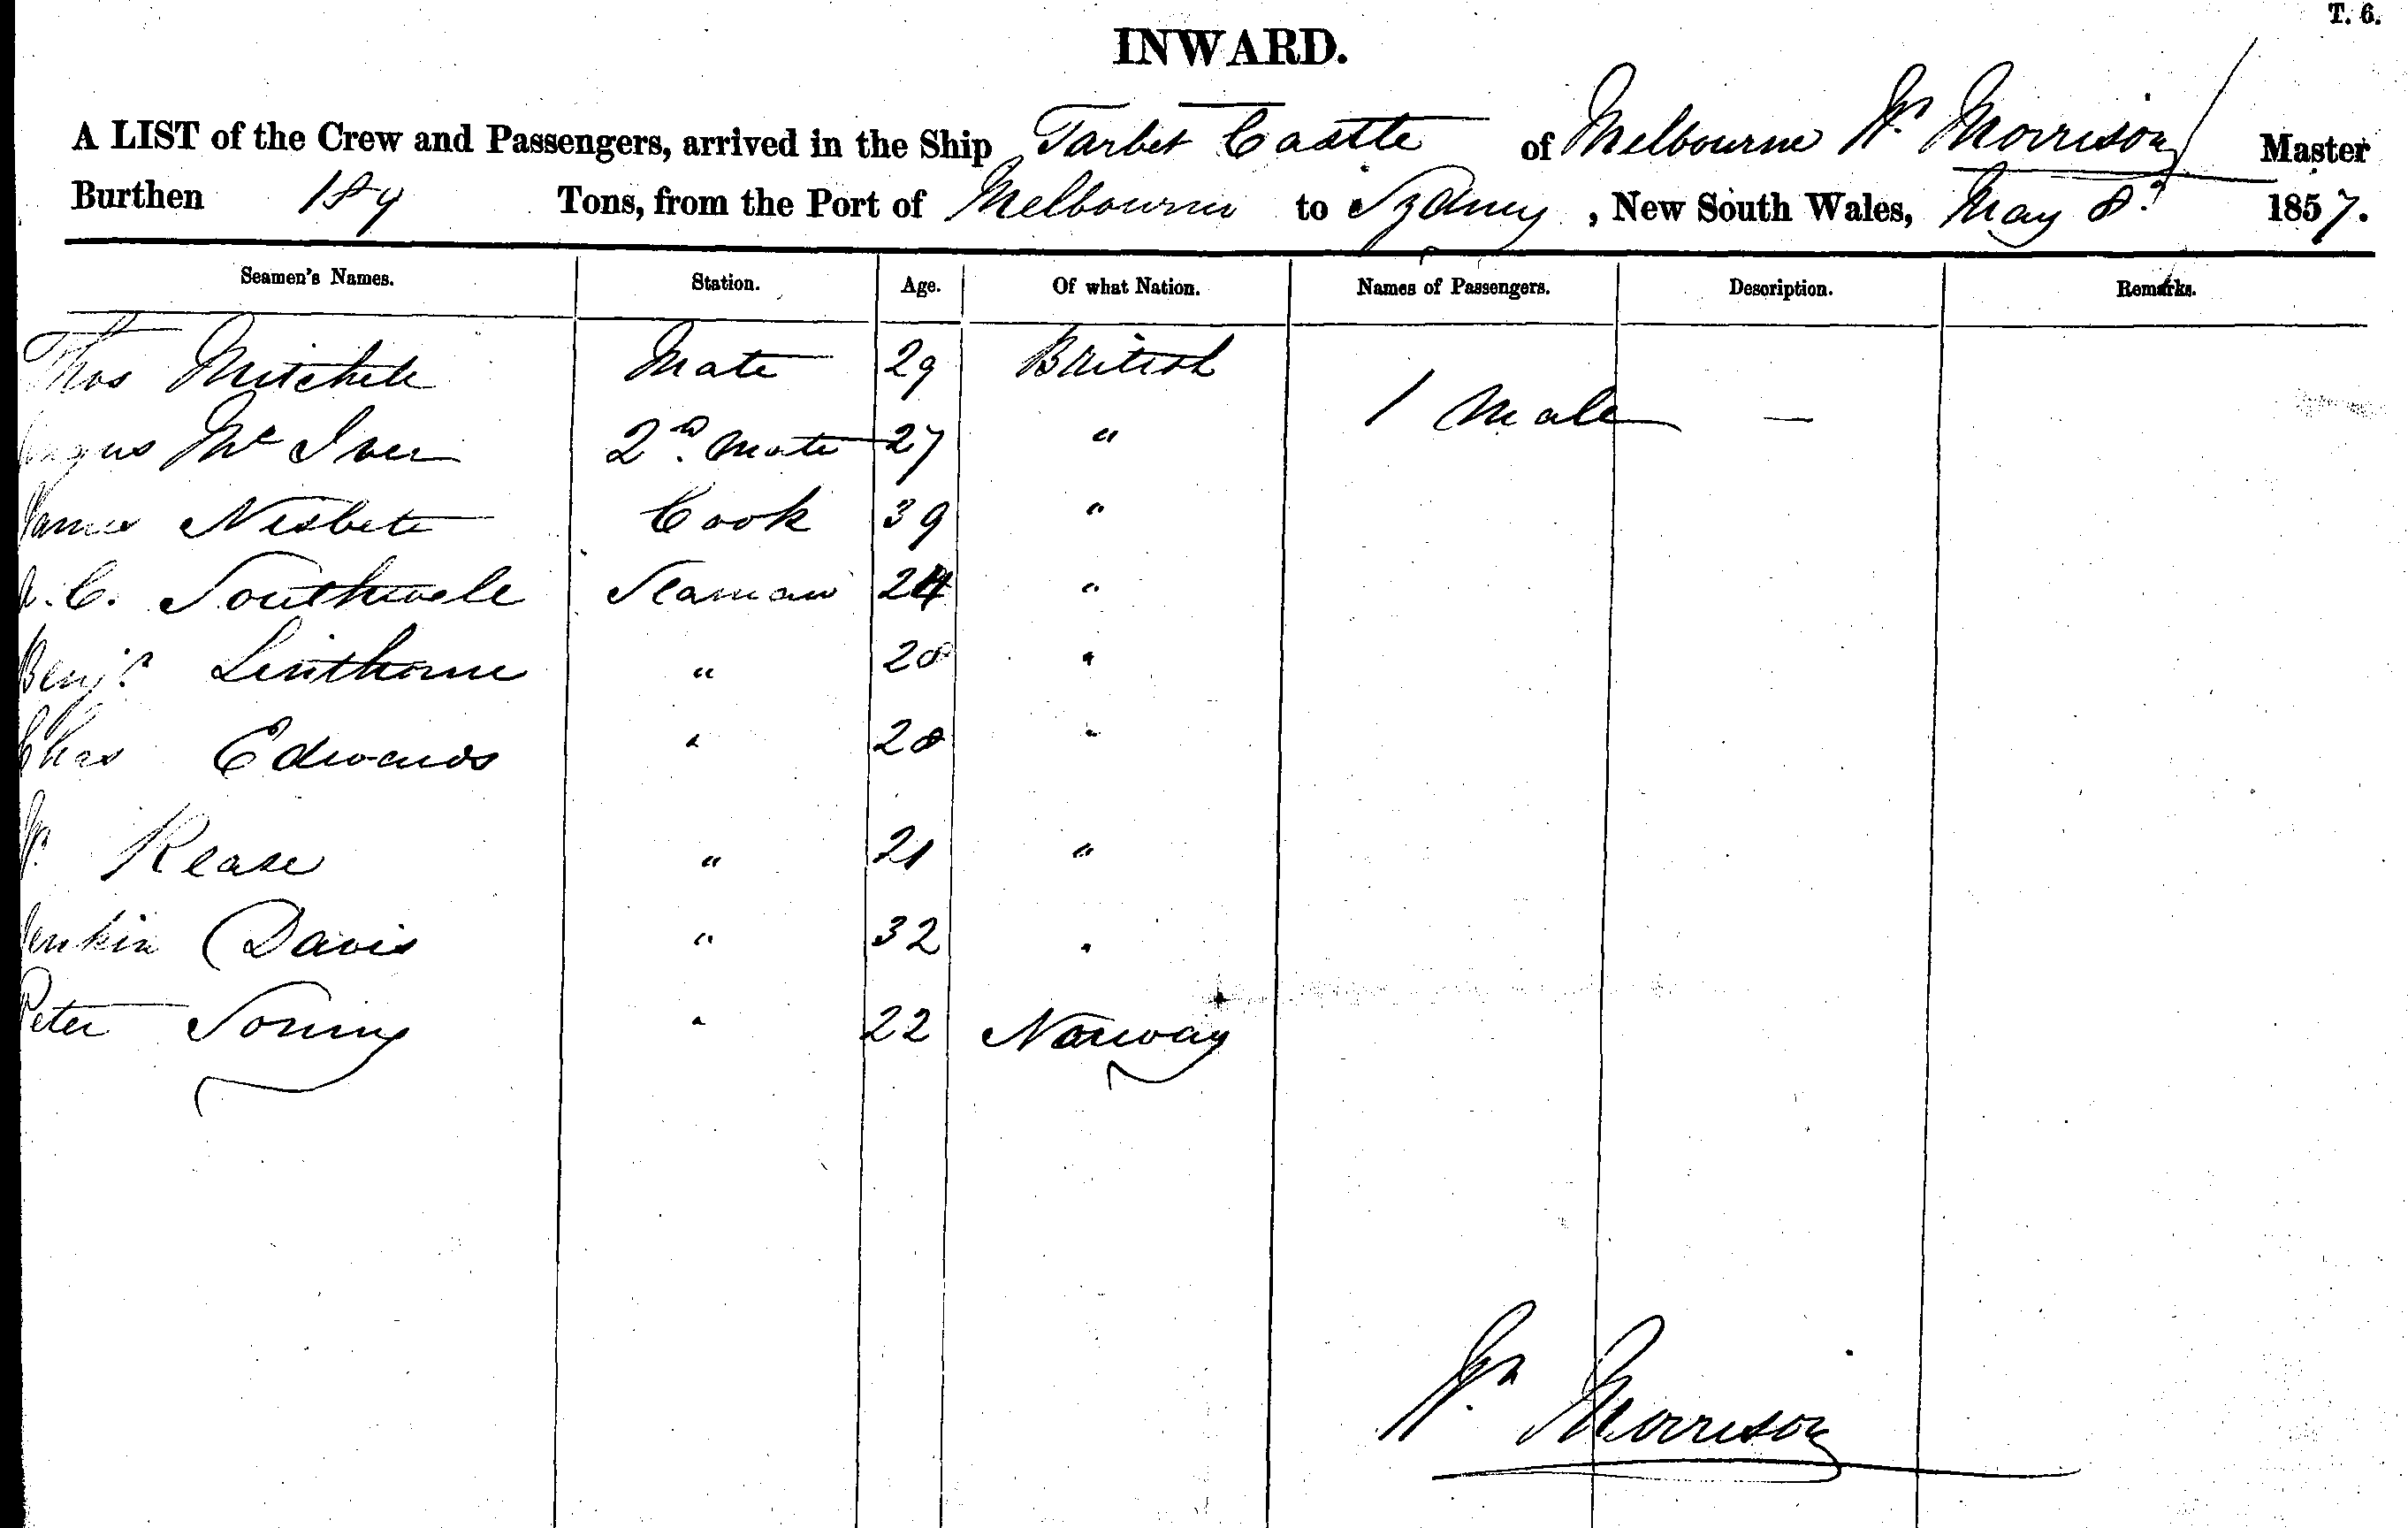 T. 6.
INWARD.
A LIST of the Crew and Passengers, arrived in the Ship Tarbet Castle of Melbourne Wm Morrison Master
Burthen 189 Tons, from the Port of Melbourne to Sydney, New South Wales, May 8th 1857.
Seamen's Names. Station. Age. Of what Nation. Names of Passengers. Description. Remarks.
Thos Mitchell Mate 29 British
1 Male —
Angus Mc Iver 2d. Mate 27 "
James Nisbett Cook 39 "
C. Southwell Seaman 24 "
Benjn Linthorne " 28 "
Chas Edwards " 28 "
Wm Rease " 21 "
Jenkin Davis " 32 "
Peter " 22 Norway
Wm Morrison